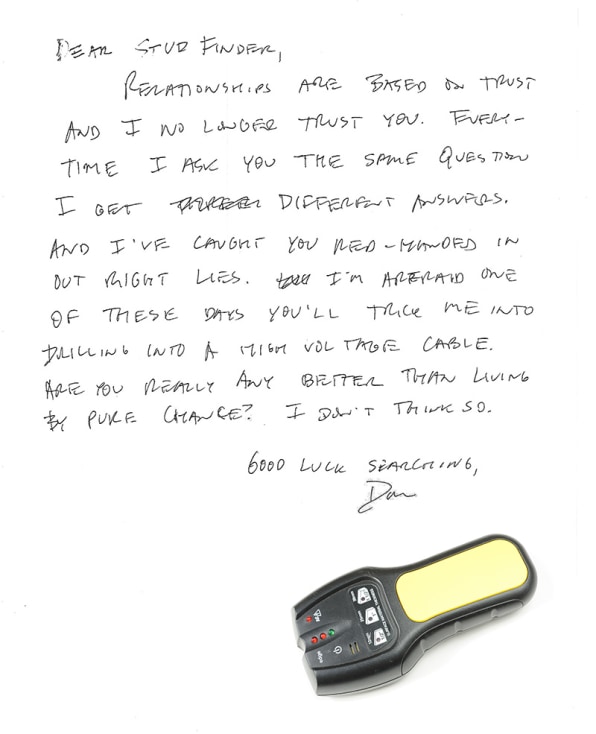 DEAR STUD FINDER,
RELATIONSHIPS ARE BASED ON TRUST
AND I NO LONGER TRUST YOU. EVERY-
TIME I ASK YOU THE SAME QUESTION
I GET DIFFERENT ANSWERS.
AND I'VE CAUGHT YOU RED-HANDED IN
OUT RIGHT LIES. I'M AFERAID ONE
OF THESE DAYS YOU'LL TRICK ME INTO
DRILLING INTO A HIGH VOLTAGE CABLE.
ARE YOU REALLY ANY BETTER THAN LIVING
BY PURE CHANCE? I DON'T THINK SO.
GOOD LUCK SEARCHING,
Dan